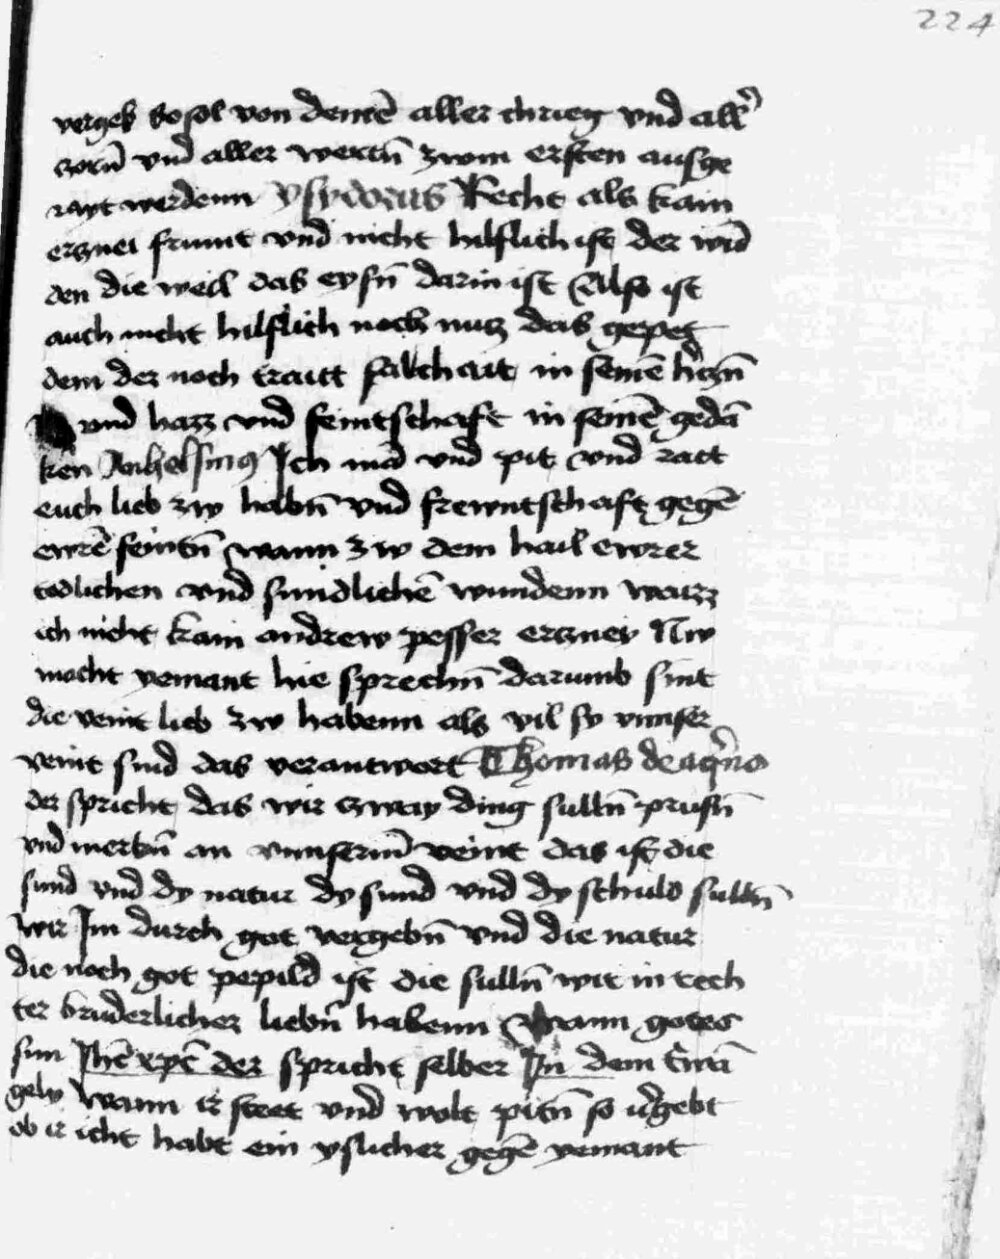 224
vergeb so sol von deinē aller chrieg vnd all̄
zorn̄ vnd aller wertn̄ zwm ersten ausge
rayt werdenn ysydorus Recht als kain
erznei frumt vnd nicht hilflich ist der wū
den die weil das eysn̄ darin ist Also ist
auch nicht hilflich noch nucz das gepet
dem der noch traitt falchait in seinē h̄czn̄
vnd hazz vnd feintschaft in seinē gedā
ken Anhelsmꝰ Ich man̄ vnd pit vnd ratt
euch lieb zw habn̄ vnd frewntschaft gegē
ewrē feintn̄ wann zw dem hail ewrer
todlichen vnd sundlichē wundenn waizz
ich nicht kain andrew pesser erzney Nw
mocht yemant hie sprechn̄ darumb sint
die veint lieb zw habenn als vil sy vnnser
veint sind das verantwort Thomas de aq̄no
der spricht das wir zway ding sulln̄ prufn̄
vnd merkn̄ an vnnserm̄ veint das ist die
sund vnd dy natur dy sund vnd dy schuld sulln̄
wir Im durch got vergebn̄ vnd die natur
die noch got pepild ist die sulln̄ wir in rech
ter bruderlicher liebn̄ habenn Wann gotes
sun Ihē xpē der spricht selber In dem Ewā
gely Wann ir steet vnd wolt pitn̄ so v̄gebt
ob ir icht habt ein yslicher gegē yemant